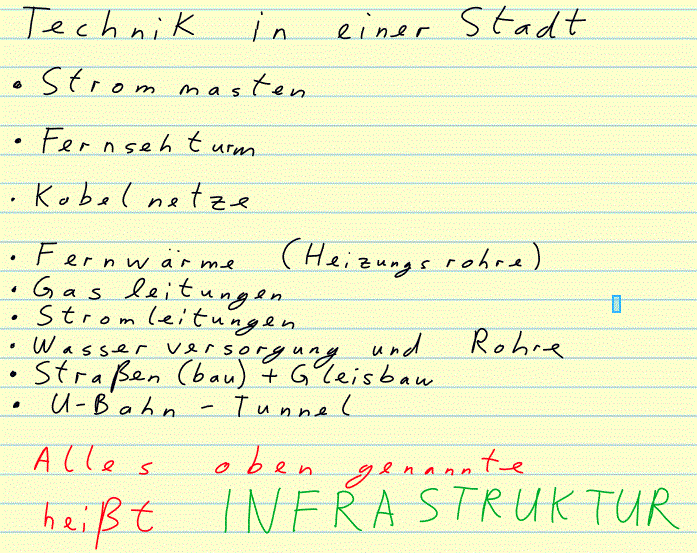 Technik in einer Stadt
• Strommasten
• Fernsehturm
• Kabelnetze
• Fernwärme (Heizungsrohre)
• Gasleitungen
• Stromleitungen
• Wasserversorgung und Rohre
• Straßen(bau) + Gleisbau
• U-Bahn - Tunnel
Alles oben genannte
heißt INFRASTRUKTUR